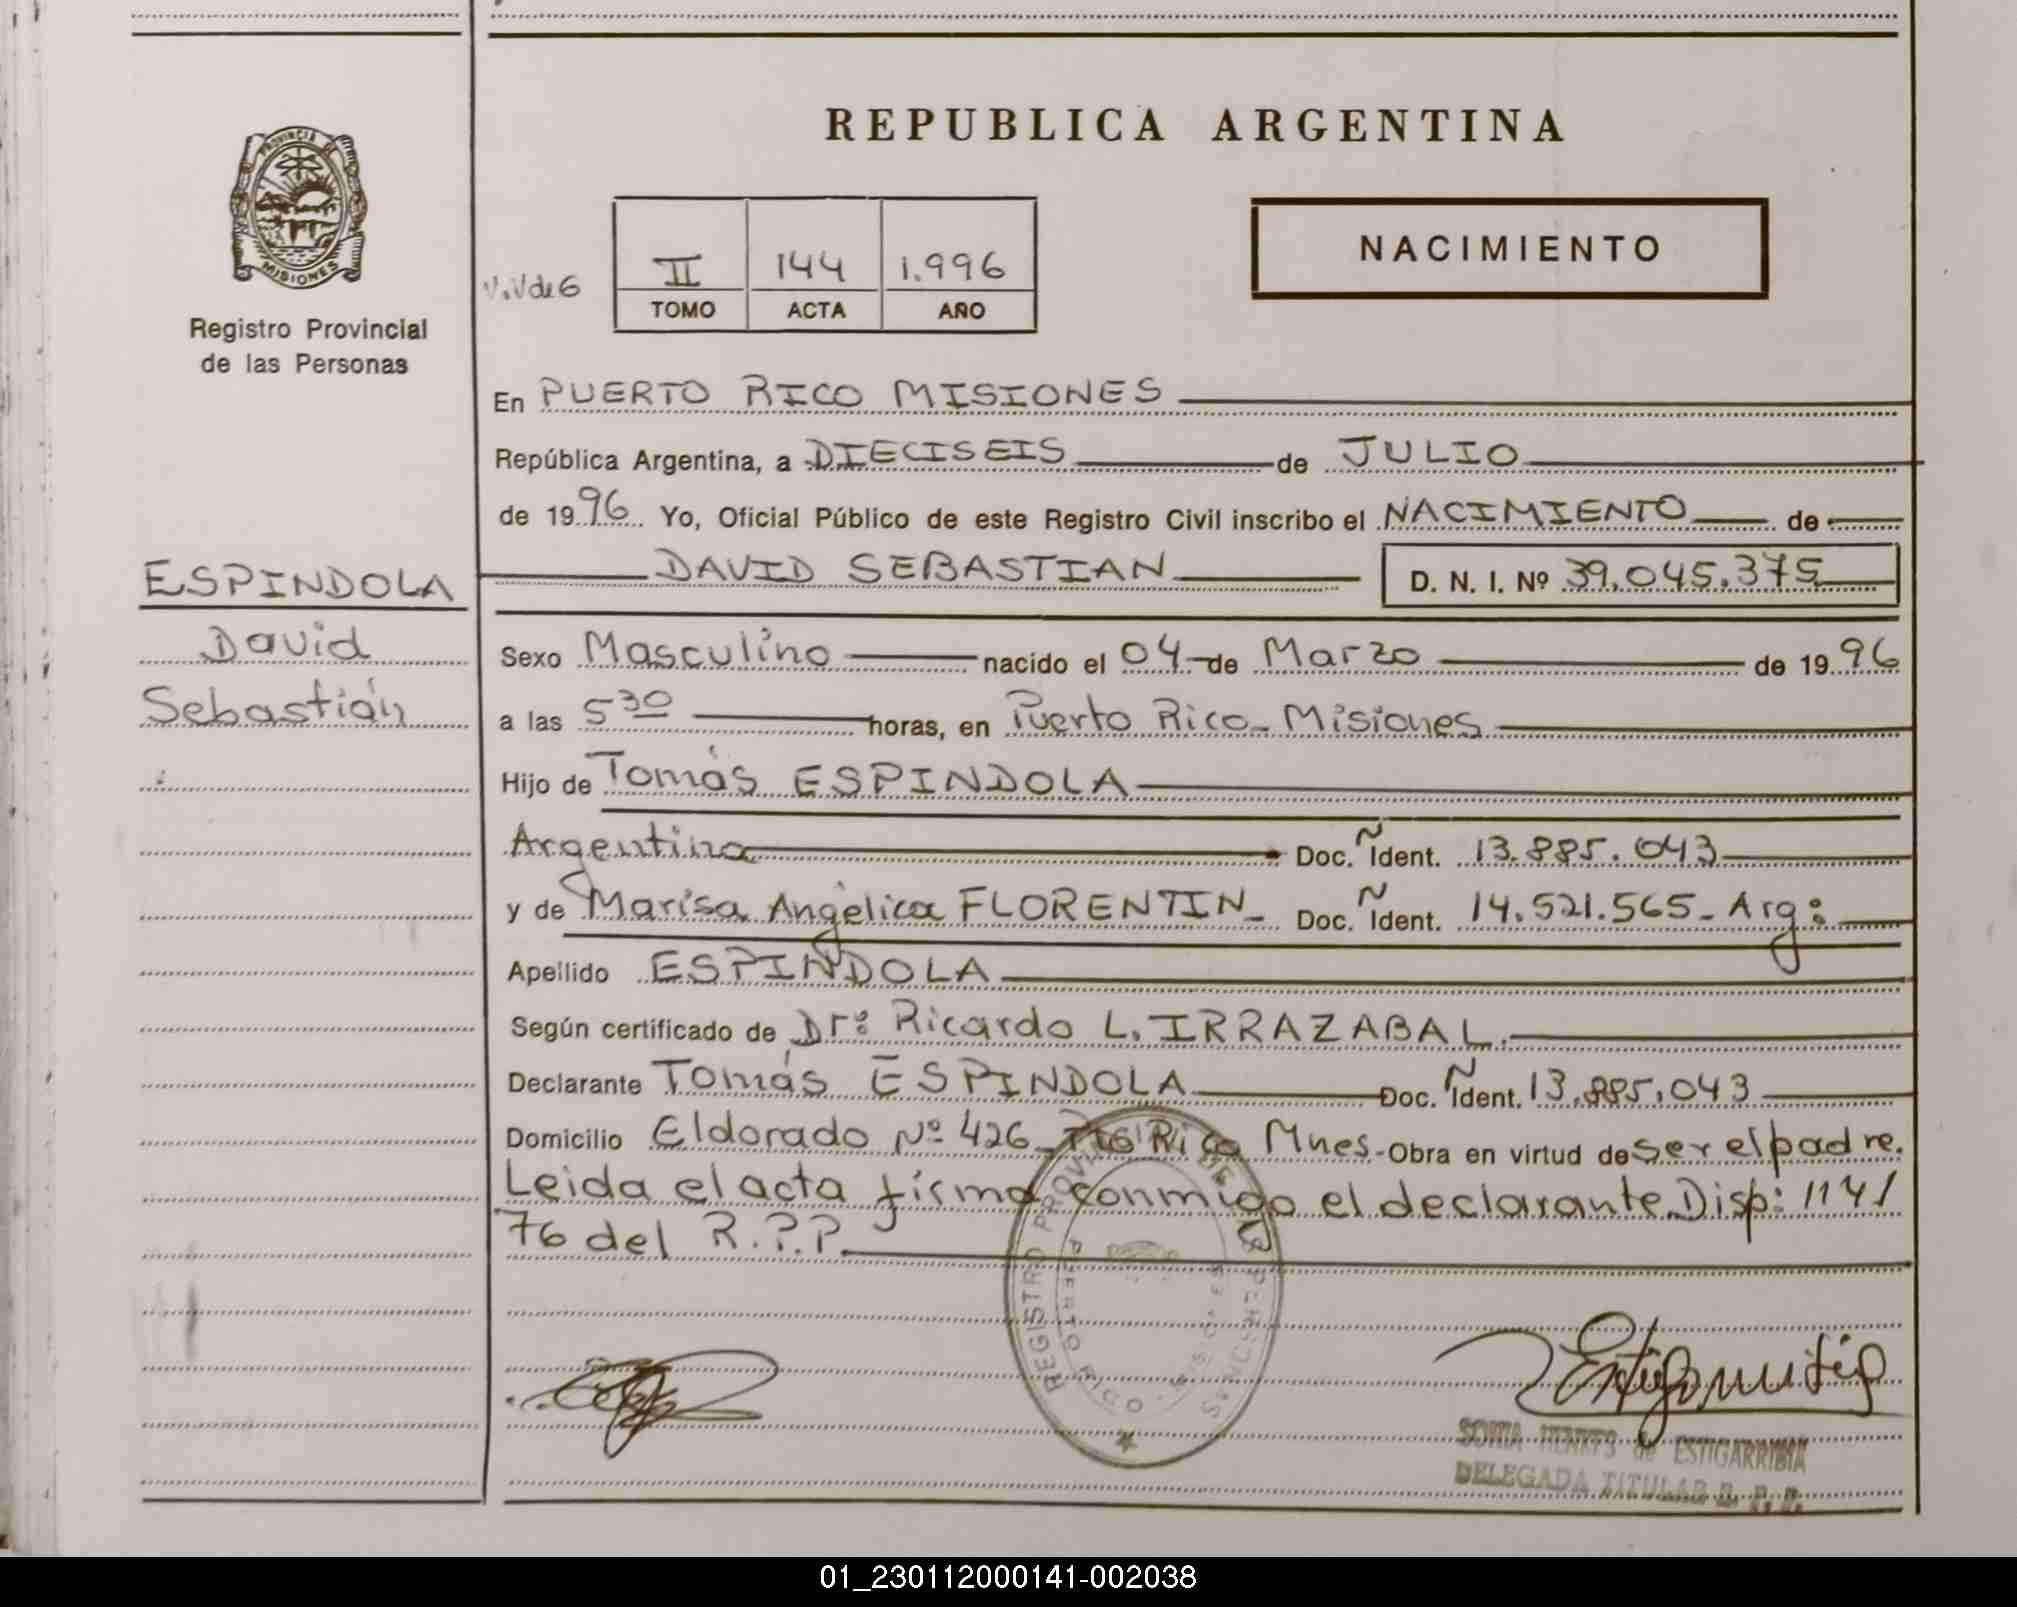 REPUBLICA ARGENTINA
PROVINCIA DE
MISIONES
Registro Provincial
de las Personas
II 144 1.996
TOMO ACTA AÑO
NACIMIENTO
En PUERTO RICO MISIONES
República Argentina, a DIECISEIS de JULIO
de 1996 Yo, Oficial Público de este Registro Civil inscribo el NACIMIENTO de
DAVID SEBASTIAN D. N. I. Nº 39.045.375
ESPINDOLA
David
Sebastián
Sexo Masculino nacido el 04 de Marzo de 1996
a las 5 30 horas, en Puerto Rico - Misiones
Hijo de Tomás ESPINDOLA
Argentino Doc. Ñ Ident. 13.885.043
y de Marisa Angélica FLORENTIN - Doc. Ñ Ident. 14.521.565 - Arg:
Apellido ESPINDOLA
Según certificado de Dr: Ricardo L. IRRAZABAL.
Declarante Tomás ESPINDOLA Doc. Ñ Ident. 13.885.043
Domicilio Eldorado Nº 426 - Pto Rico Mnes - Obra en virtud de ser el padre.
Leida el acta firma conmigo el declarante. Disp: 114/
76 del R.P.P.
REGISTRO PROVINCIAL DE LAS PERSONAS
PUERTO RICO - MISIONES
ESTIGARRIBIA
DELEGADA TITULAR R. P. P.
01_230112000141-002038